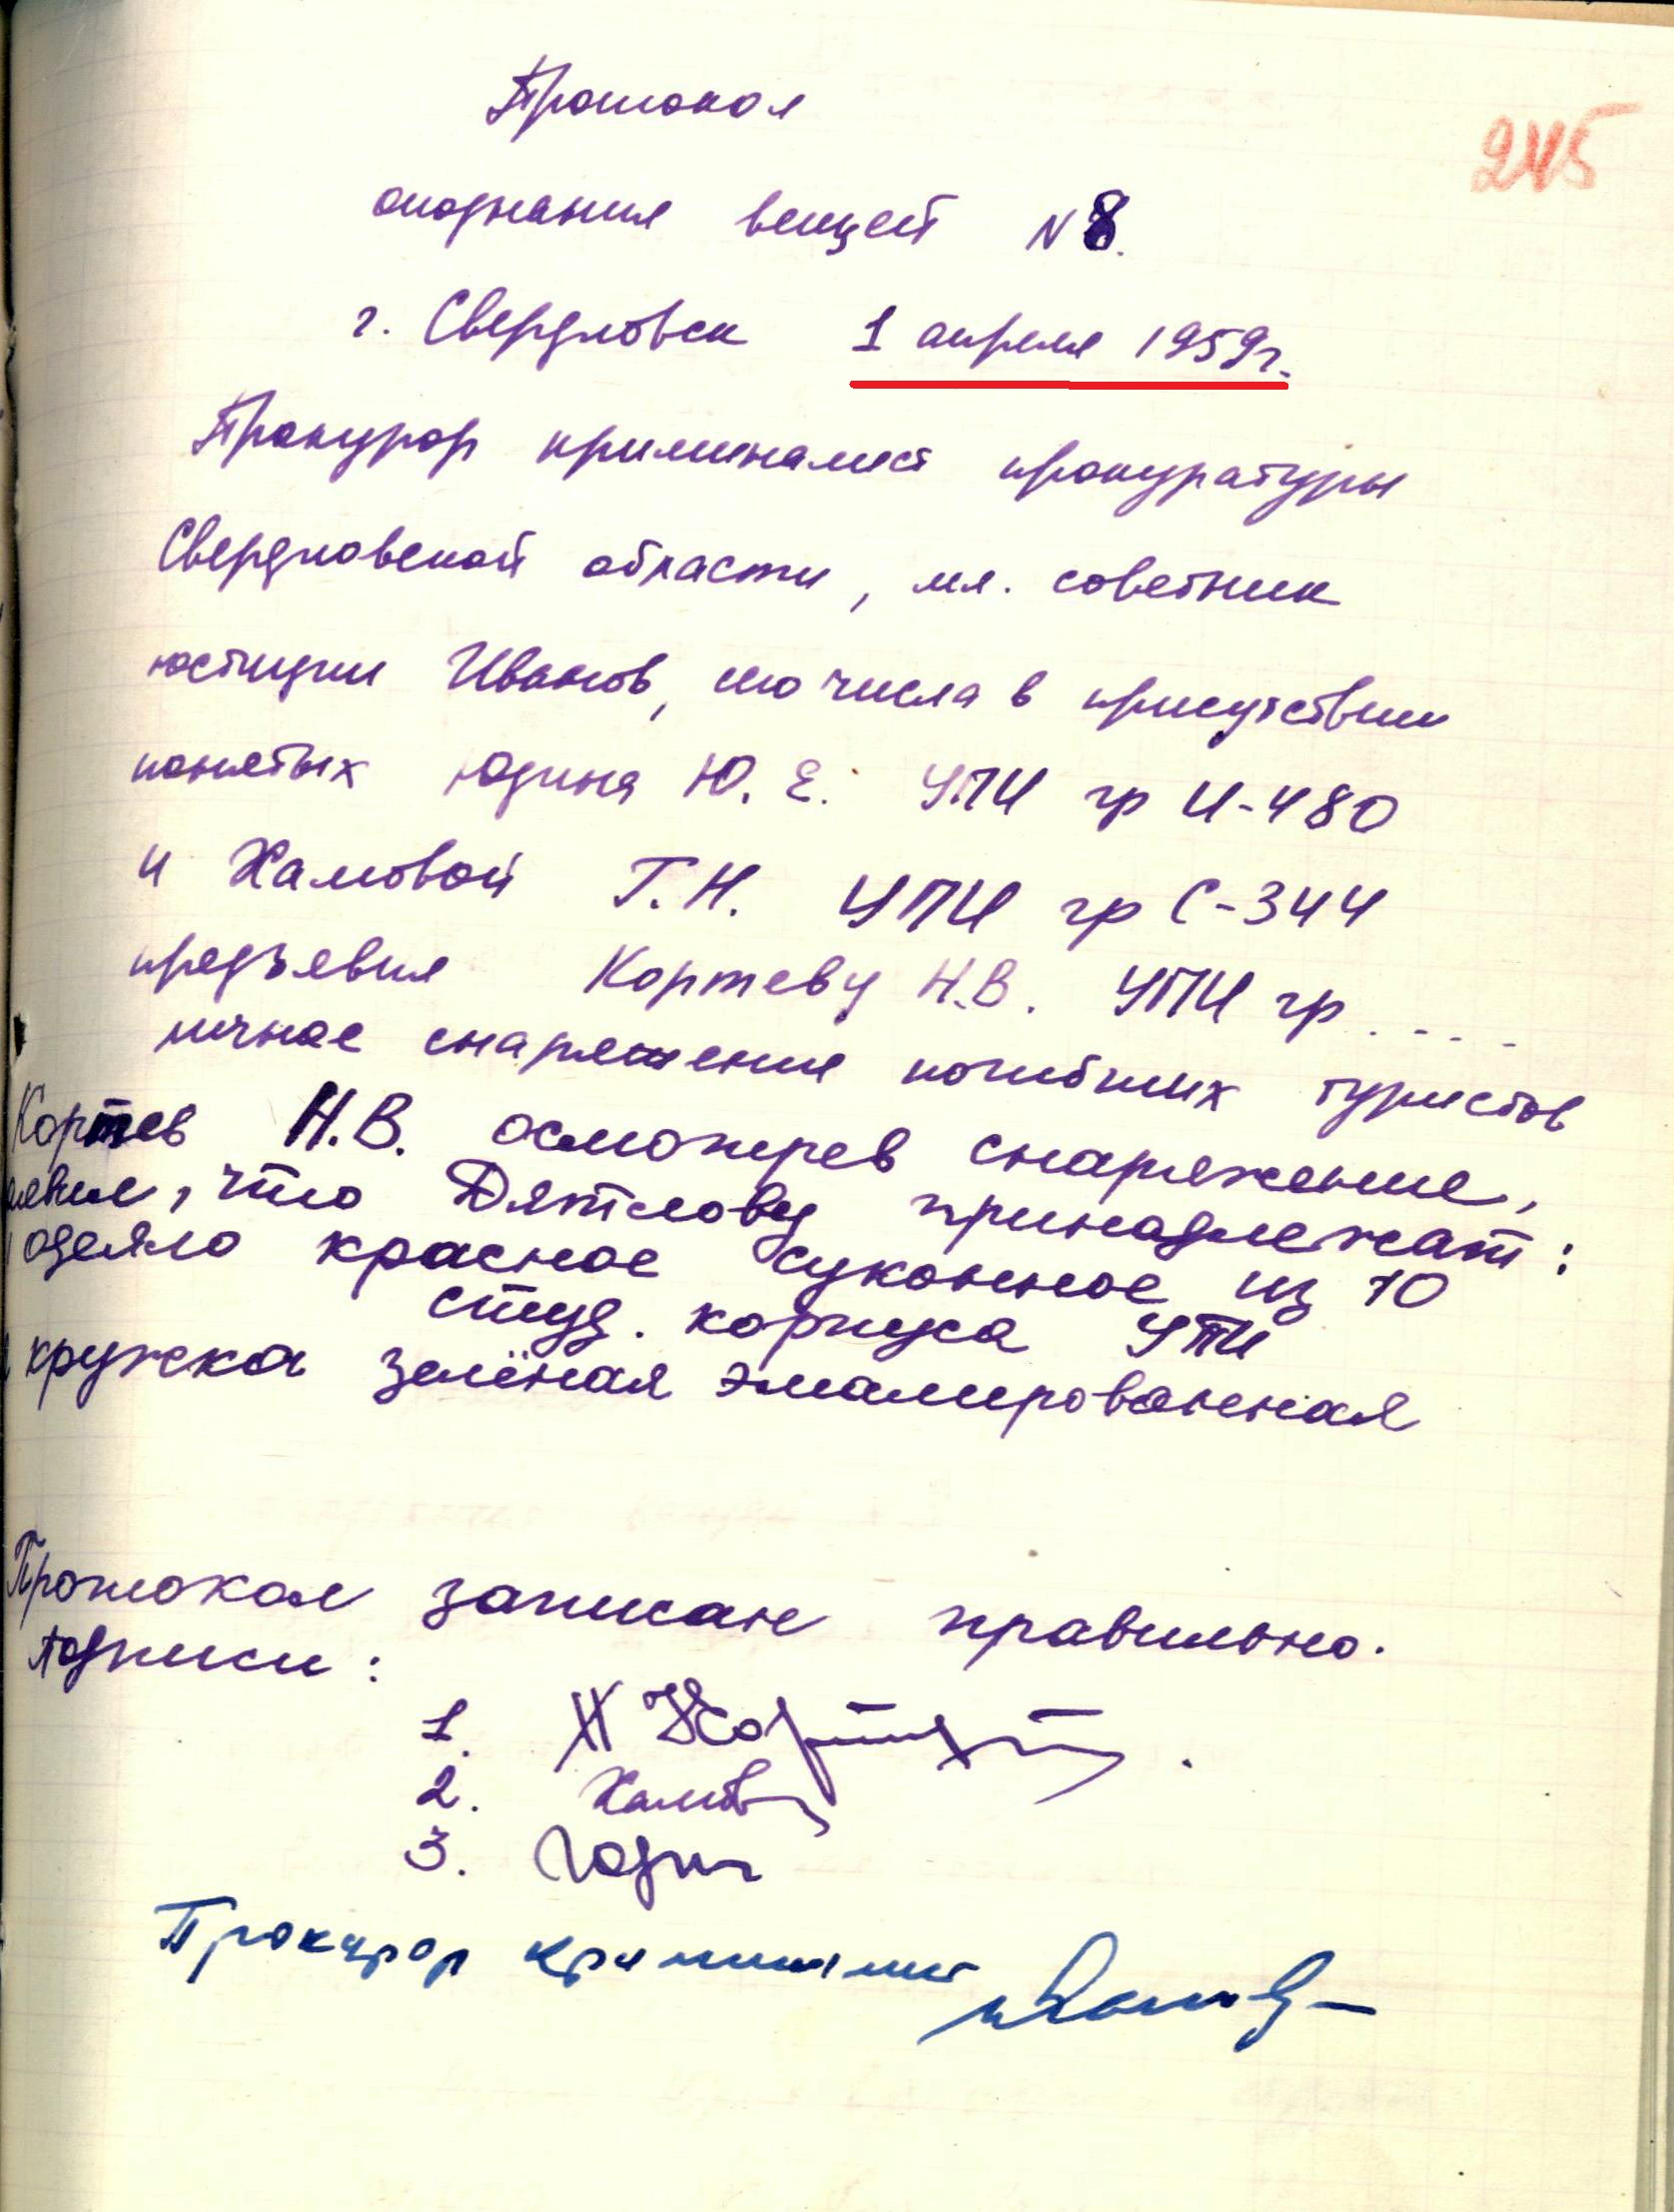 245
Протокол
опознания вещей N 8.
г. Свердловск 1 апреля 1959 г.
Прокурор криминалист прокуратуры
Свердловской области, мл. советник
юстиции Иванов, сего числа в присутствии
понятых Юдина Ю. Е. УПИ гр И-480
и Хамовой Г.Н. УПИ гр С-344
предъявил Кортеву Н.В. УПИ гр ....
личное снаряжение погибших туристов
Кортев Н.В. осмотрев снаряжение,
аявил, что Дятлову принадлежат:
одеяло красное суконное из 10
студ. корпуса УПИ
кружка зелёная эмалированная
Протокол записан правильно.
Подписи:
1. Н Кортев
2. Хамова
3. Юдин
Прокурор криминалист Иванов